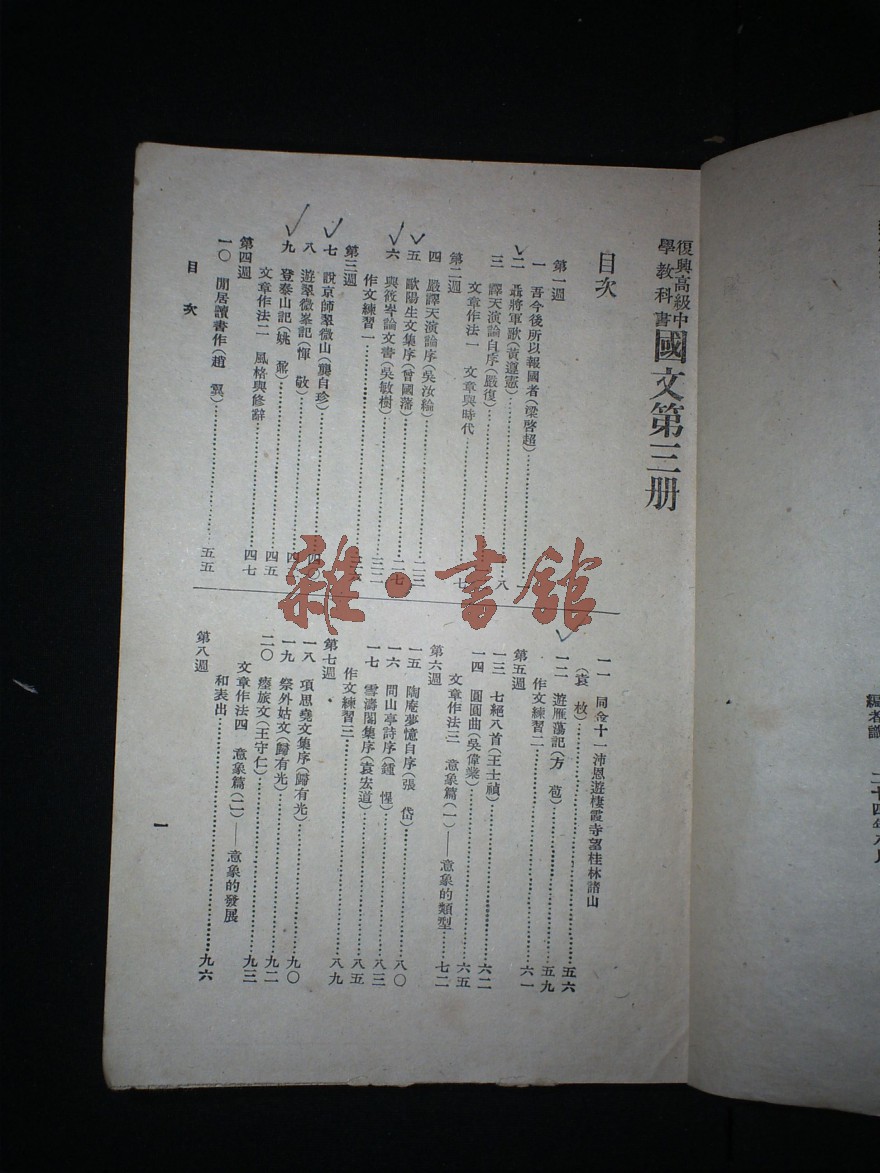 復興高級中
學教科書
國文第三册
目次
第一週
一 吾今後所以報國者(梁啓超)……一
二 聶將軍歌(黃遵憲)
三 譯天演論自序(嚴復)……八
文章作法一 文章與時代
第二週
四 嚴譯天演論序(吳汝綸)……二三
五 歐陽生文集序(曾國藩)……二七
六 與筱岑論文書(吳敏樹)……三二
作文練習一
第三週
七 說京師翠微山(龔自珍)……四〇
八 遊翠微峯記(惲 敬)
九 登泰山記(姚 鼐)……四五
文章作法二 風格與修辭……四七
第四週
一〇 閒居讀書作(趙 翼)……五五
目 次
一一 同金十一沛恩遊棲霞寺望桂林諸山
(袁 枚)……五六
一二 遊雁蕩記(方 苞)……五九
作文練習二……六一
第五週
一三 七絕八首(王士禎)……六二
一四 圓圓曲(吳偉業)……六五
文章作法三 意象篇(一)——意象的類型……七二
第六週
一五 陶庵夢憶自序(張 岱)……八〇
一六 問山亭詩序(鍾 惺)……八三
一七 雪濤閣集序(袁宏道)……八五
作文練習三……八九
第七週
一八 項思堯文集序(歸有光)……九〇
一九 祭外姑文(歸有光)……九二
二〇 瘞旅文(王守仁)……九三
文章作法四 意象篇(二)——意象的發展
和表出……九六
第八週
一
雜·書館
編者識
二十四年八月